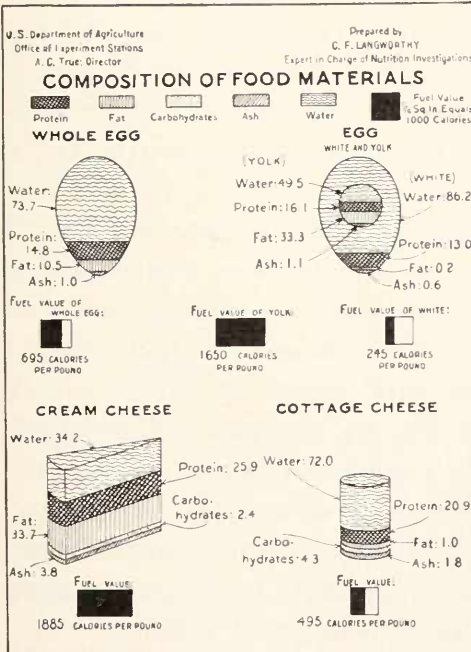 U.S. Department of Agriculture
Office of Experiment Stations
A. C. True: Director
Prepared by
C. F. LANGWORTHY
Expert in Charge of Nutrition Investigations
COMPOSITION OF FOOD MATERIALS
Protein Fat Carbohydrates Ash Water
Fuel Value
Sq. In. Equals
1000 Calories
WHOLE EGG
Water:
73.7
Protein:
14.8
Fat: 10.5
Ash: 1.0
FUEL VALUE OF
WHOLE EGG:
695 CALORIES
PER POUND
EGG
WHITE AND YOLK
(YOLK)
Water: 49.5
Protein: 16.1
Fat: 33.3
Ash: 1.1
(WHITE)
Water: 86.2
Protein: 13.0
Fat: 0.2
Ash: 0.6
FUEL VALUE OF YOLK:
1650 CALORIES
PER POUND
FUEL VALUE OF WHITE:
245 CALORIES
PER POUND
CREAM CHEESE
Water: 34.2
Protein: 25.9
Carbo-
hydrates: 2.4
Fat:
33.7
Ash: 3.8
FUEL VALUE:
1885 CALORIES PER POUND
COTTAGE CHEESE
Water: 72.0
Protein: 20.9
Fat: 1.0
Ash: 1.8
Carbo-
hydrates: 4.3
FUEL VALUE:
495 CALORIES PER POUND